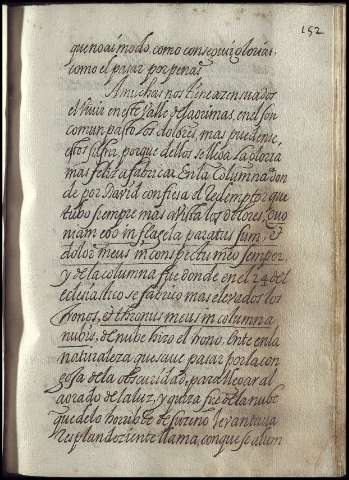 152
que no ai modo, como conseguir glorias,
como el pasar por penas.
A muchas nos tiene azensuados
el viuir en este Valle de lagrimas, en el son
comun pasto los dolores, mas pueden se
estos sufrir, porque dellos se llega la gloria
mas feliz a fabricar. En la columna a don
de por David confiesa el Redemptor que
tubo siempre mas a vista los dolores, quo
niam ego in flagela paratus sum, et
dolor meus in conspectu meo semper,
y de la columna fue donde en el 24 del
eclesiastico se fabrico mas elevados los
tronos, et thronus meus in columna
nubis, de nube hizo el trono. Ente en la
naturaleza que sube pasar por la con
goja de la obscuridad, para llegar al
agrado de la luz, y quiza fue de la nube
que de lo horrible de su zeno levanta una
resplandeziente llama, con que se alum